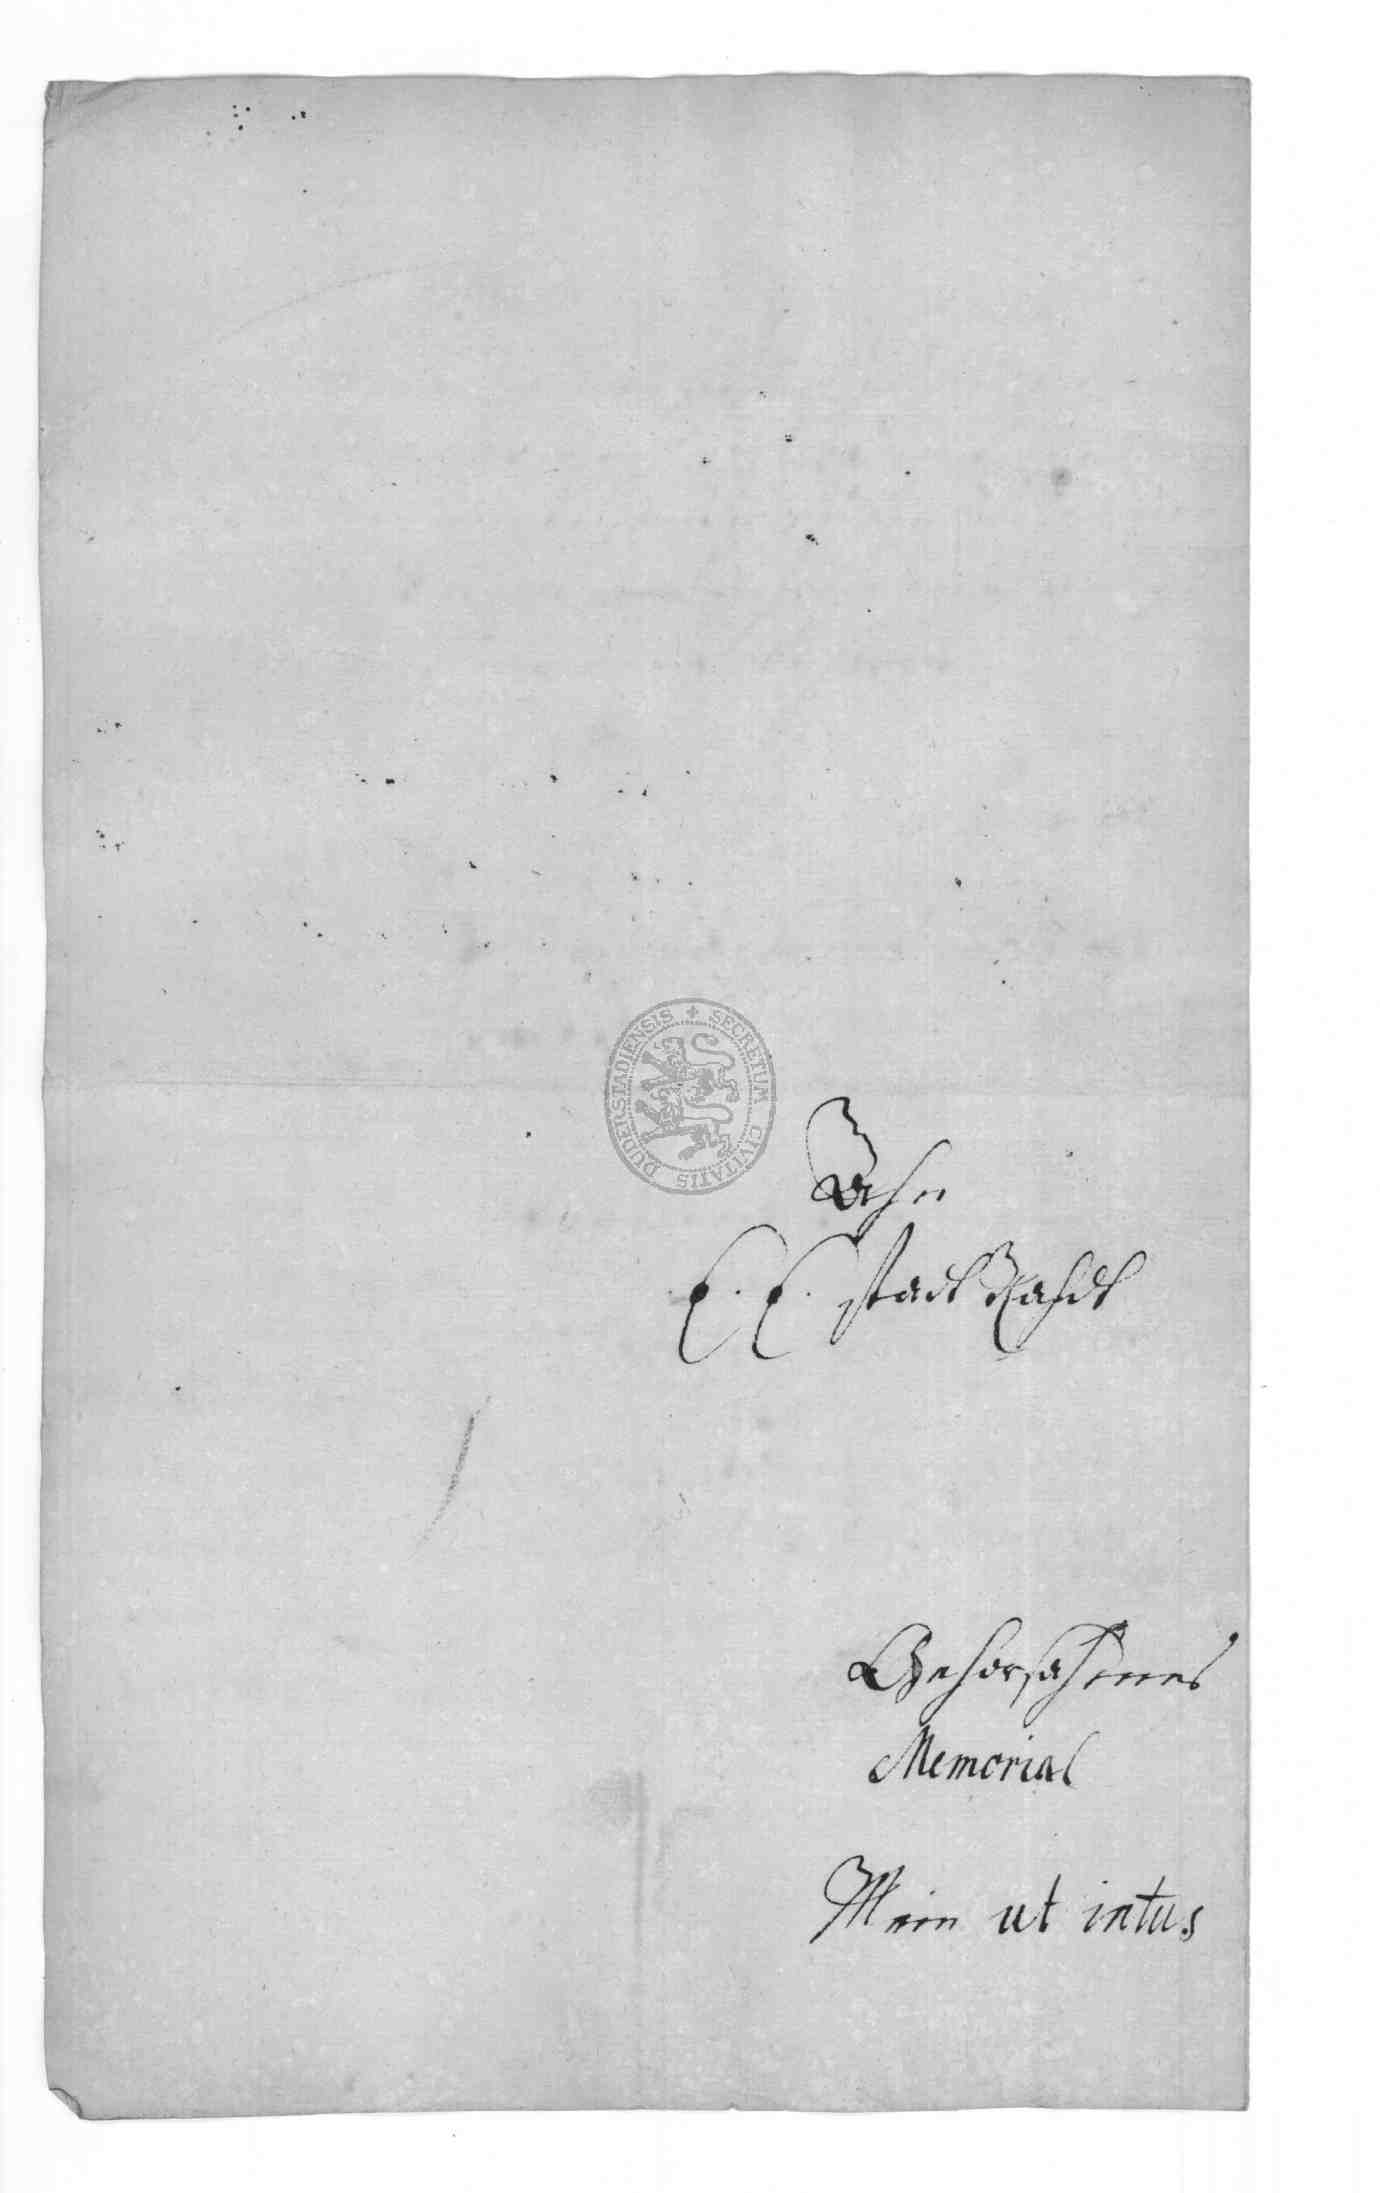 SECRETUM CIVITATIS DUDERSTADIENSIS
Ahn
E. E. stadt Rahdt
Gehorsahmes
Memorial
Mein ut intus